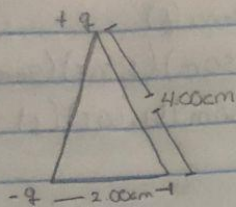 + q
4.00cm
-q — 2.00cm